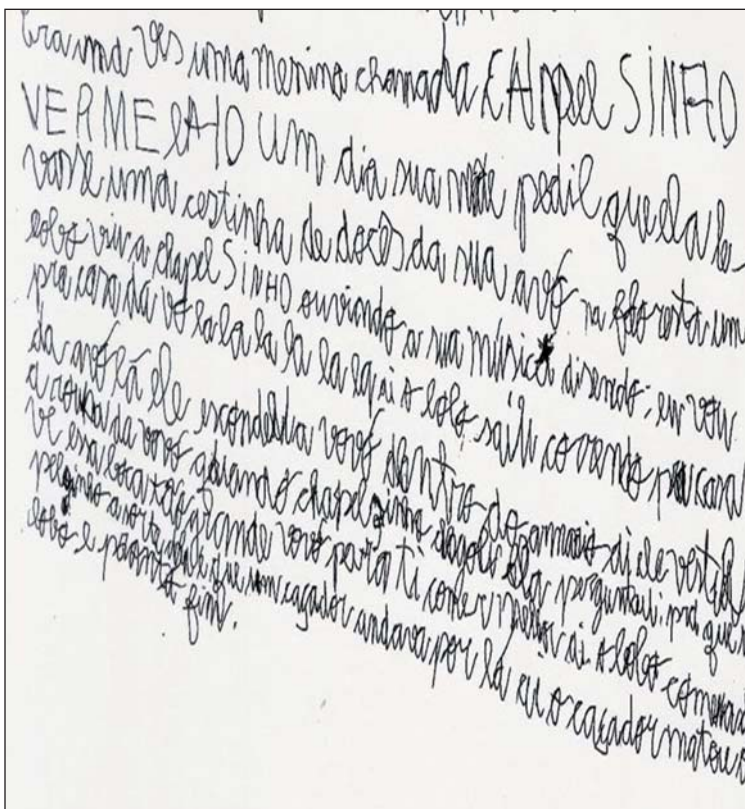 Era uma ves uma menina chamada CAhpel SINHO
VERMElHO UM dia sua mãe pedil que ela le-
vasse uma cestinha de doces da sua avó na floresta um
lobo viu a chapel SINHO ouvindo a sua música disendo: eu vou
pra casa da vó la la la la la e qai o lobo saiu correndo pra casa
da avó lá ele escondel a vovó dentro do armario ai ele vestiu
a roupa da vovó quando chapelzinho ela pergunta
ve essa boca tão grande vovó para ti comer melhor ai o lobo
que um caçador andava por lá ai o caçador matou o
lobo e pronto fim.